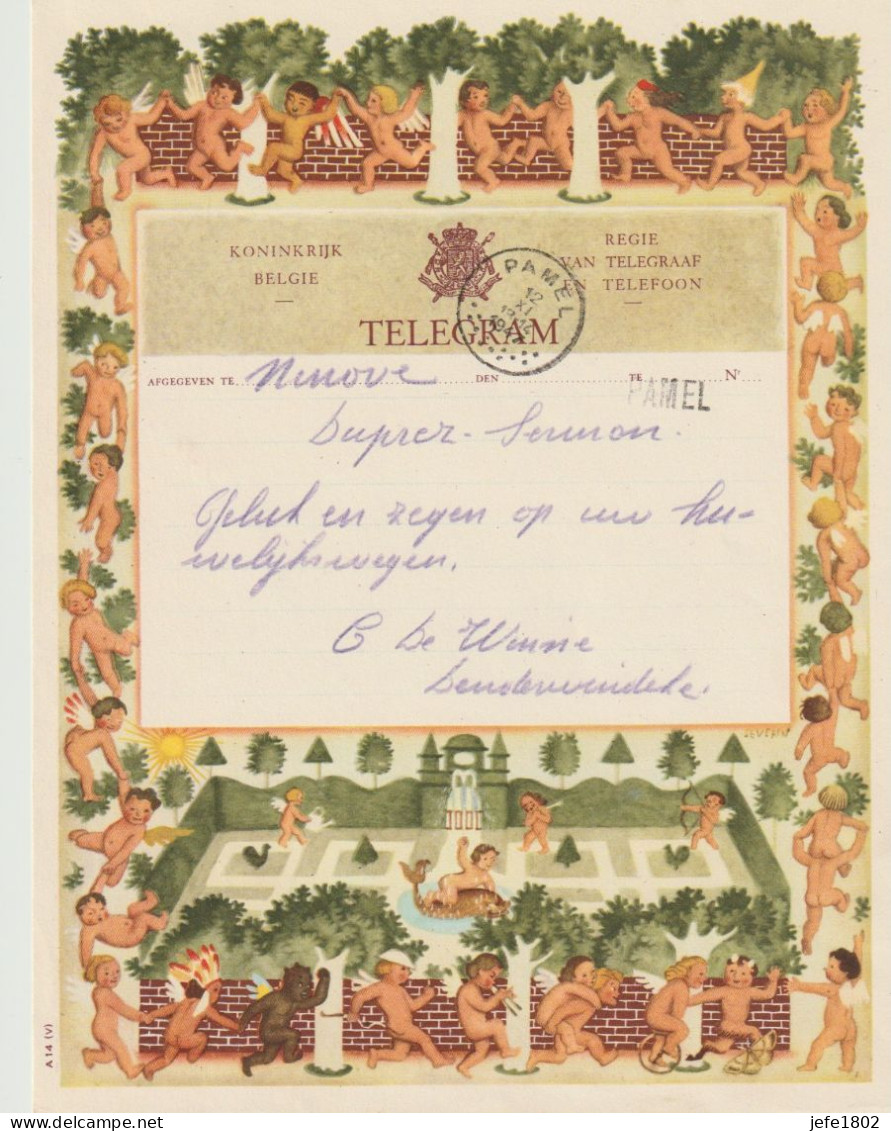 KONINKRIJK
BELGIE
REGIE
VAN TELEGRAAF
EN TELEFOON
PAMEL
12
XI
TELEGRAM
AFGEGEVEN TE Ninove DEN TE Nr
PAMEL
Duprez - Sermon.
Geluk en zegen op uw hu-
welijkswegen.
C De Winne
Denderwindeke.
SEVERIN
A 14 (V)
delcampe.net
jefe1802